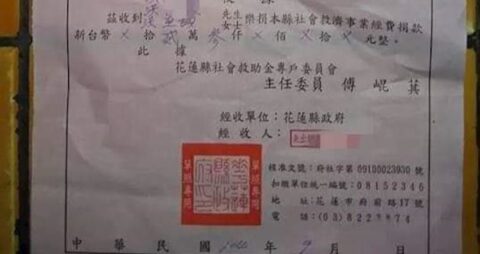 茲收到 先生 女士 樂捐本縣社會救濟事業經費捐款
新台幣 × 拾 貳 萬 參 仟 × 佰 × 拾 × 元整。
此據
花蓮縣社會救助金專戶委員會
主任委員 傅崐萁
經收單位：花蓮縣政府
經收人：
花蓮縣政府印
單照專用
單照專用
核准文號：府社字第09100023930號
扣繳單位統一編號：08152346
地址：花蓮市府前路17號
電話：(03)822
中華民國 年 9 月 日